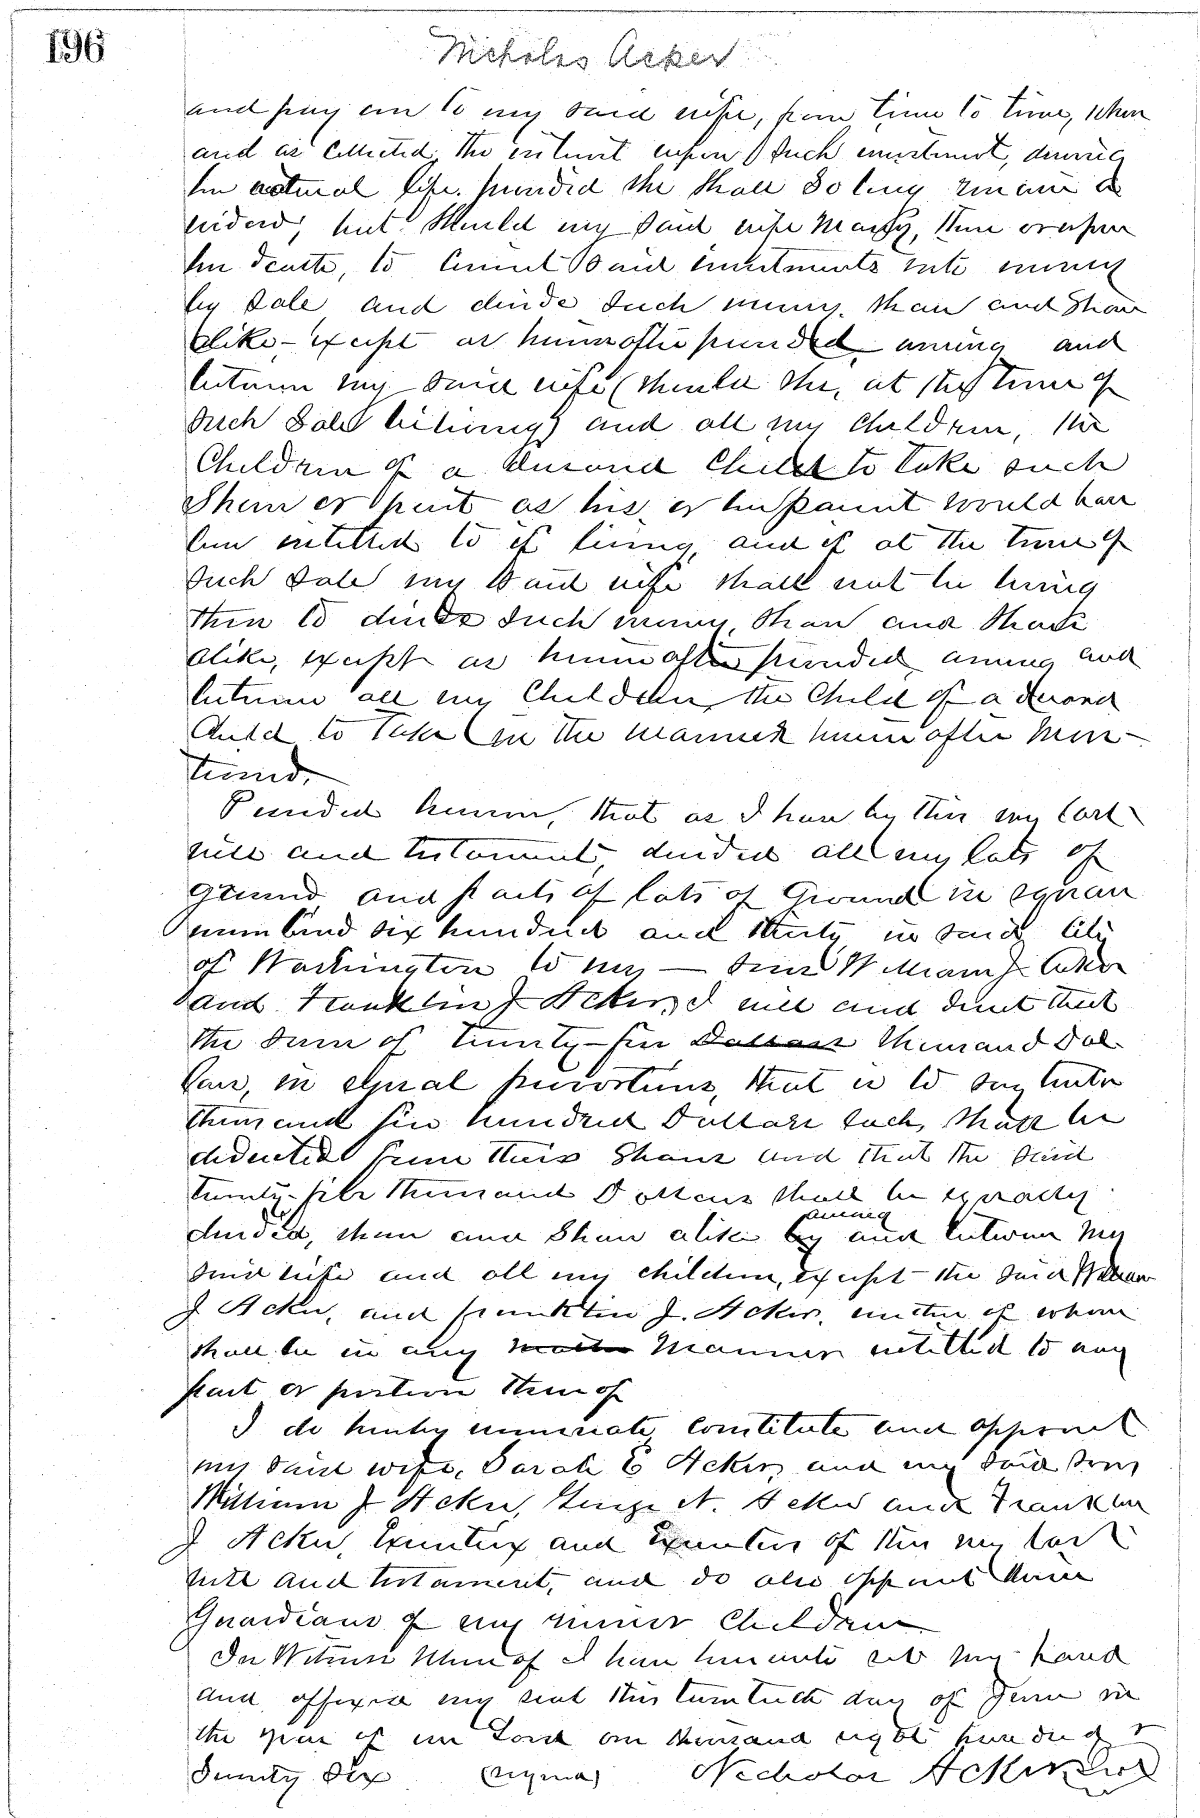 196
Nicholas Acker
and pay over to my said wife, from time to time, when
and as collected, the interest upon such investment, during
her natural life. provided she shall so long remain a
widow; but should my said wife Marry, then or upon
her death, to convert said investments into money
by sale and divide such money, share and share
alike - except as hereinafter provided among and
between my said wife (should she, at the time of
such sale be living) and all my children, the
Children of a deceased Child to take such
Share or part as his or her parent would have
been entitled to if living, and if at the time of
such sale my said wife shall not be living
then to divide such money, share and share
alike, except as hereinafter provided, among and
between all my Children, the Child of a deceased
Child to take in the manner hereinafter men-
tioned.
Provided however, that as I have by this my last
will and testament, divided all my lots of
ground and parts of lots of Ground in square
numbered six hundred and thirty in said City
of Washington to my — sons William J. Acker
and Franklin J Acker, I will and direct that
the sum of twenty-five Dollars thousand Dol-
lars, in equal proportions, that is to say twelve
thousand five hundred Dollars each, shall be
deducted from their Shares and that the said
twenty-five thousand Dollars shall be equally
divided, share and share alike by among and between my
said wife and all my children, except the said William
J Acker, and Franklin J. Acker, neither of whom
shall be in any Manner entitled to any
part or portion thereof
I do hereby nominate, constitute and appoint
my said wife, Sarah E Acker, and my said sons
William J Acker, George N. Acker and Franklin
J Acker, Executrix and Executors of this my last
will and testament, and do also appoint them
Guardians of my minor Children.
In Witness Whereof I have hereunto set my hand
and affixed my seal this twentieth day of June in
the year of our Lord one thousand eight hundred &
Seventy Six (signed) Nicholas Acker Seal